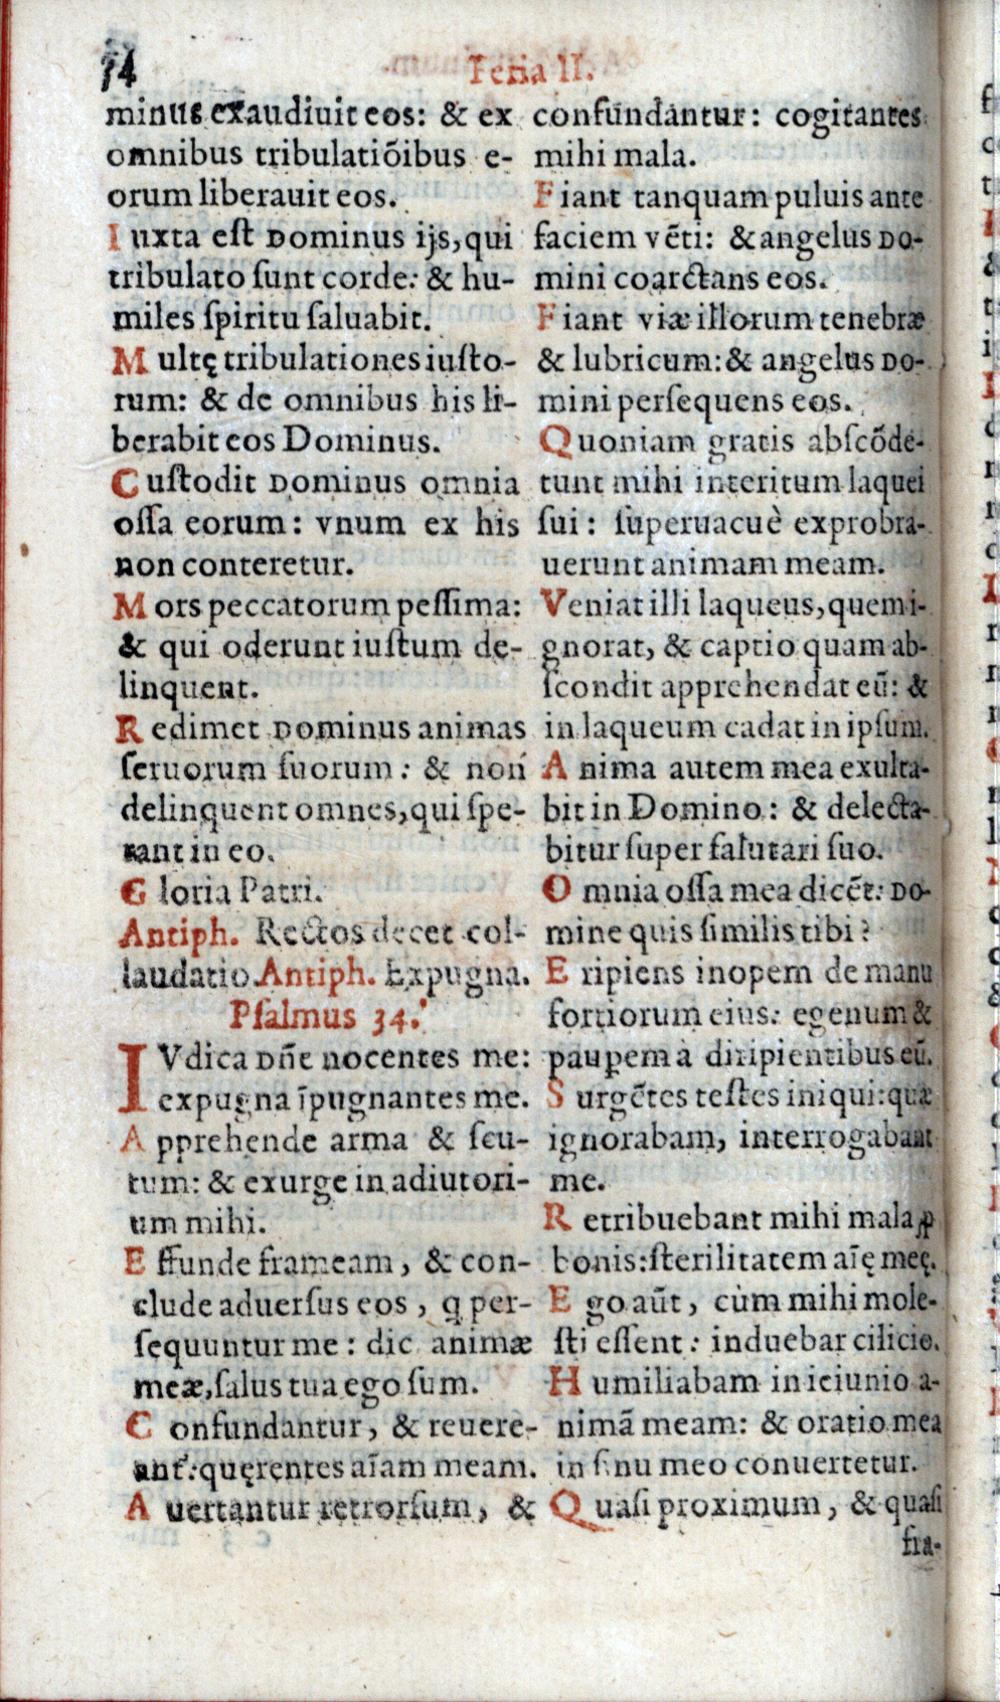 14
Feria II.
minus exaudiuit eos: & ex
omnibus tribulatiõibus e-
orum liberauit eos.
Iuxta est Dominus ijs, qui
tribulato sunt corde: & hu-
miles spiritu saluabit.
Multę tribulationes iusto-
rum: & de omnibus his li-
berabit eos Dominus.
Custodit Dominus omnia
ossa eorum: vnum ex his
non conteretur.
Mors peccatorum pessima:
& qui oderunt iustum de-
linquent.
Redimet Dominus animas
seruorum suorum: & non
delinquent omnes, qui spe-
rant in eo.
Gloria Patri.
Antiph. Rectos decet col-
laudatio. Antiph. Expugna.
Psalmus 34.
IVdica Dñe nocentes me:
expugna īpugnantes me.
Apprehende arma & scu-
tum: & exurge in adiutori-
um mihi.
Effunde frameam, & con-
clude aduersus eos, q per-
sequuntur me: dic animæ
meæ, salus tua ego sum.
Confundantur, & reuere-
ant': quęrentes aīam meam.
Auertantur retrorsum, &
confundantur: cogitantes
mihi mala.
Fiant tanquam puluis ante
faciem vẽti: & angelus Do-
mini coarctans eos.
Fiant viæ illorum tenebræ
& lubricum: & angelus Do-
mini persequens eos.
Quoniam gratis abscõde-
runt mihi interitum laquei
sui: superuacuè exprobra-
uerunt animam meam.
Veniat illi laqueus, quem i-
gnorat, & captio quam ab-
scondit apprehendat eũ: &
in laqueum cadat in ipsum.
Anima autem mea exulta-
bit in Domino: & delecta-
bitur super salutari suo.
Omnia ossa mea dicẽt: Do-
mine quis similis tibi?
Eripiens inopem de manu
fortiorum eius: egenum &
paupem à diripientibus eũ.
Surgẽtes testes iniqui: quæ
ignorabam, interrogabant
me.
Retribuebant mihi mala ꝓ
bonis: sterilitatem aīę meę.
Ego aũt, cùm mihi mole-
sti essent: induebar cilicio.
Humiliabam in ieiunio a-
nimã meam: & oratio mea
in sinu meo conuertetur.
Quasi proximum, & quasi
fra-